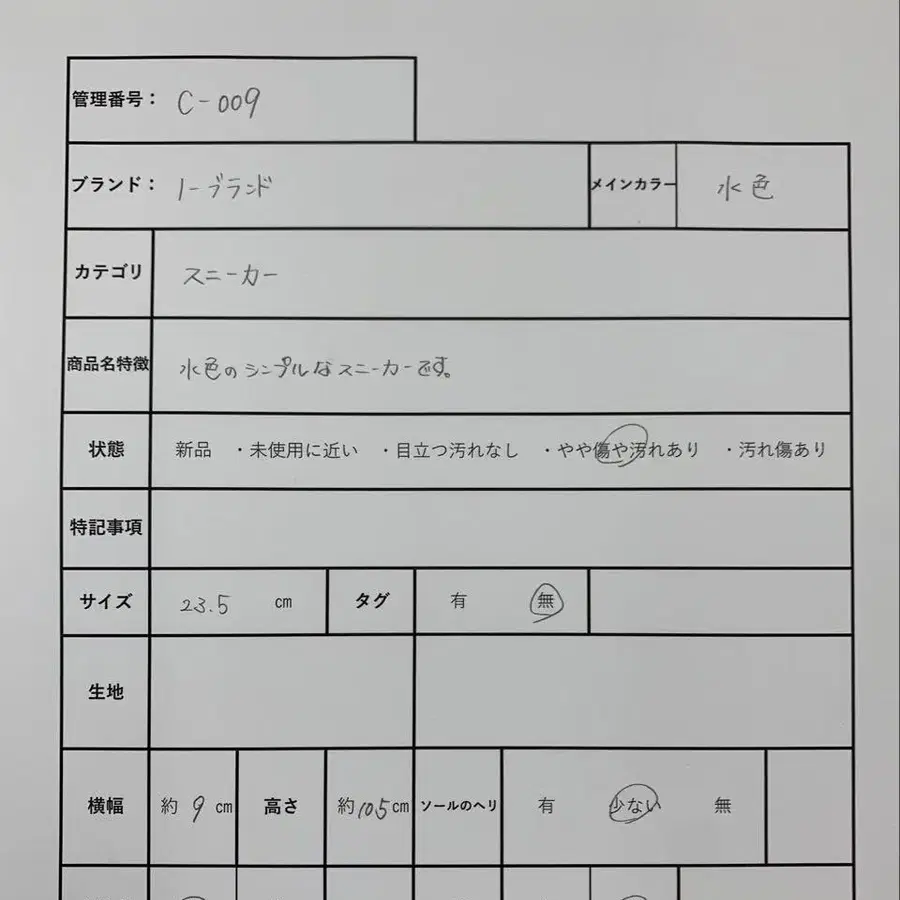 管理番号： C-009
ブランド： ノーブランド メインカラー 水色
カテゴリ スニーカー
商品名特徴 水色のシンプルなスニーカーです。
状態 新品 ・未使用に近い ・目立つ汚れなし ・やや傷や汚れあり ・汚れ傷あり
特記事項
サイズ 23.5 cm タグ 有 無
生地
横幅 約 9 cm 高さ 約 10.5 cm ソールのヘリ 有 少ない 無